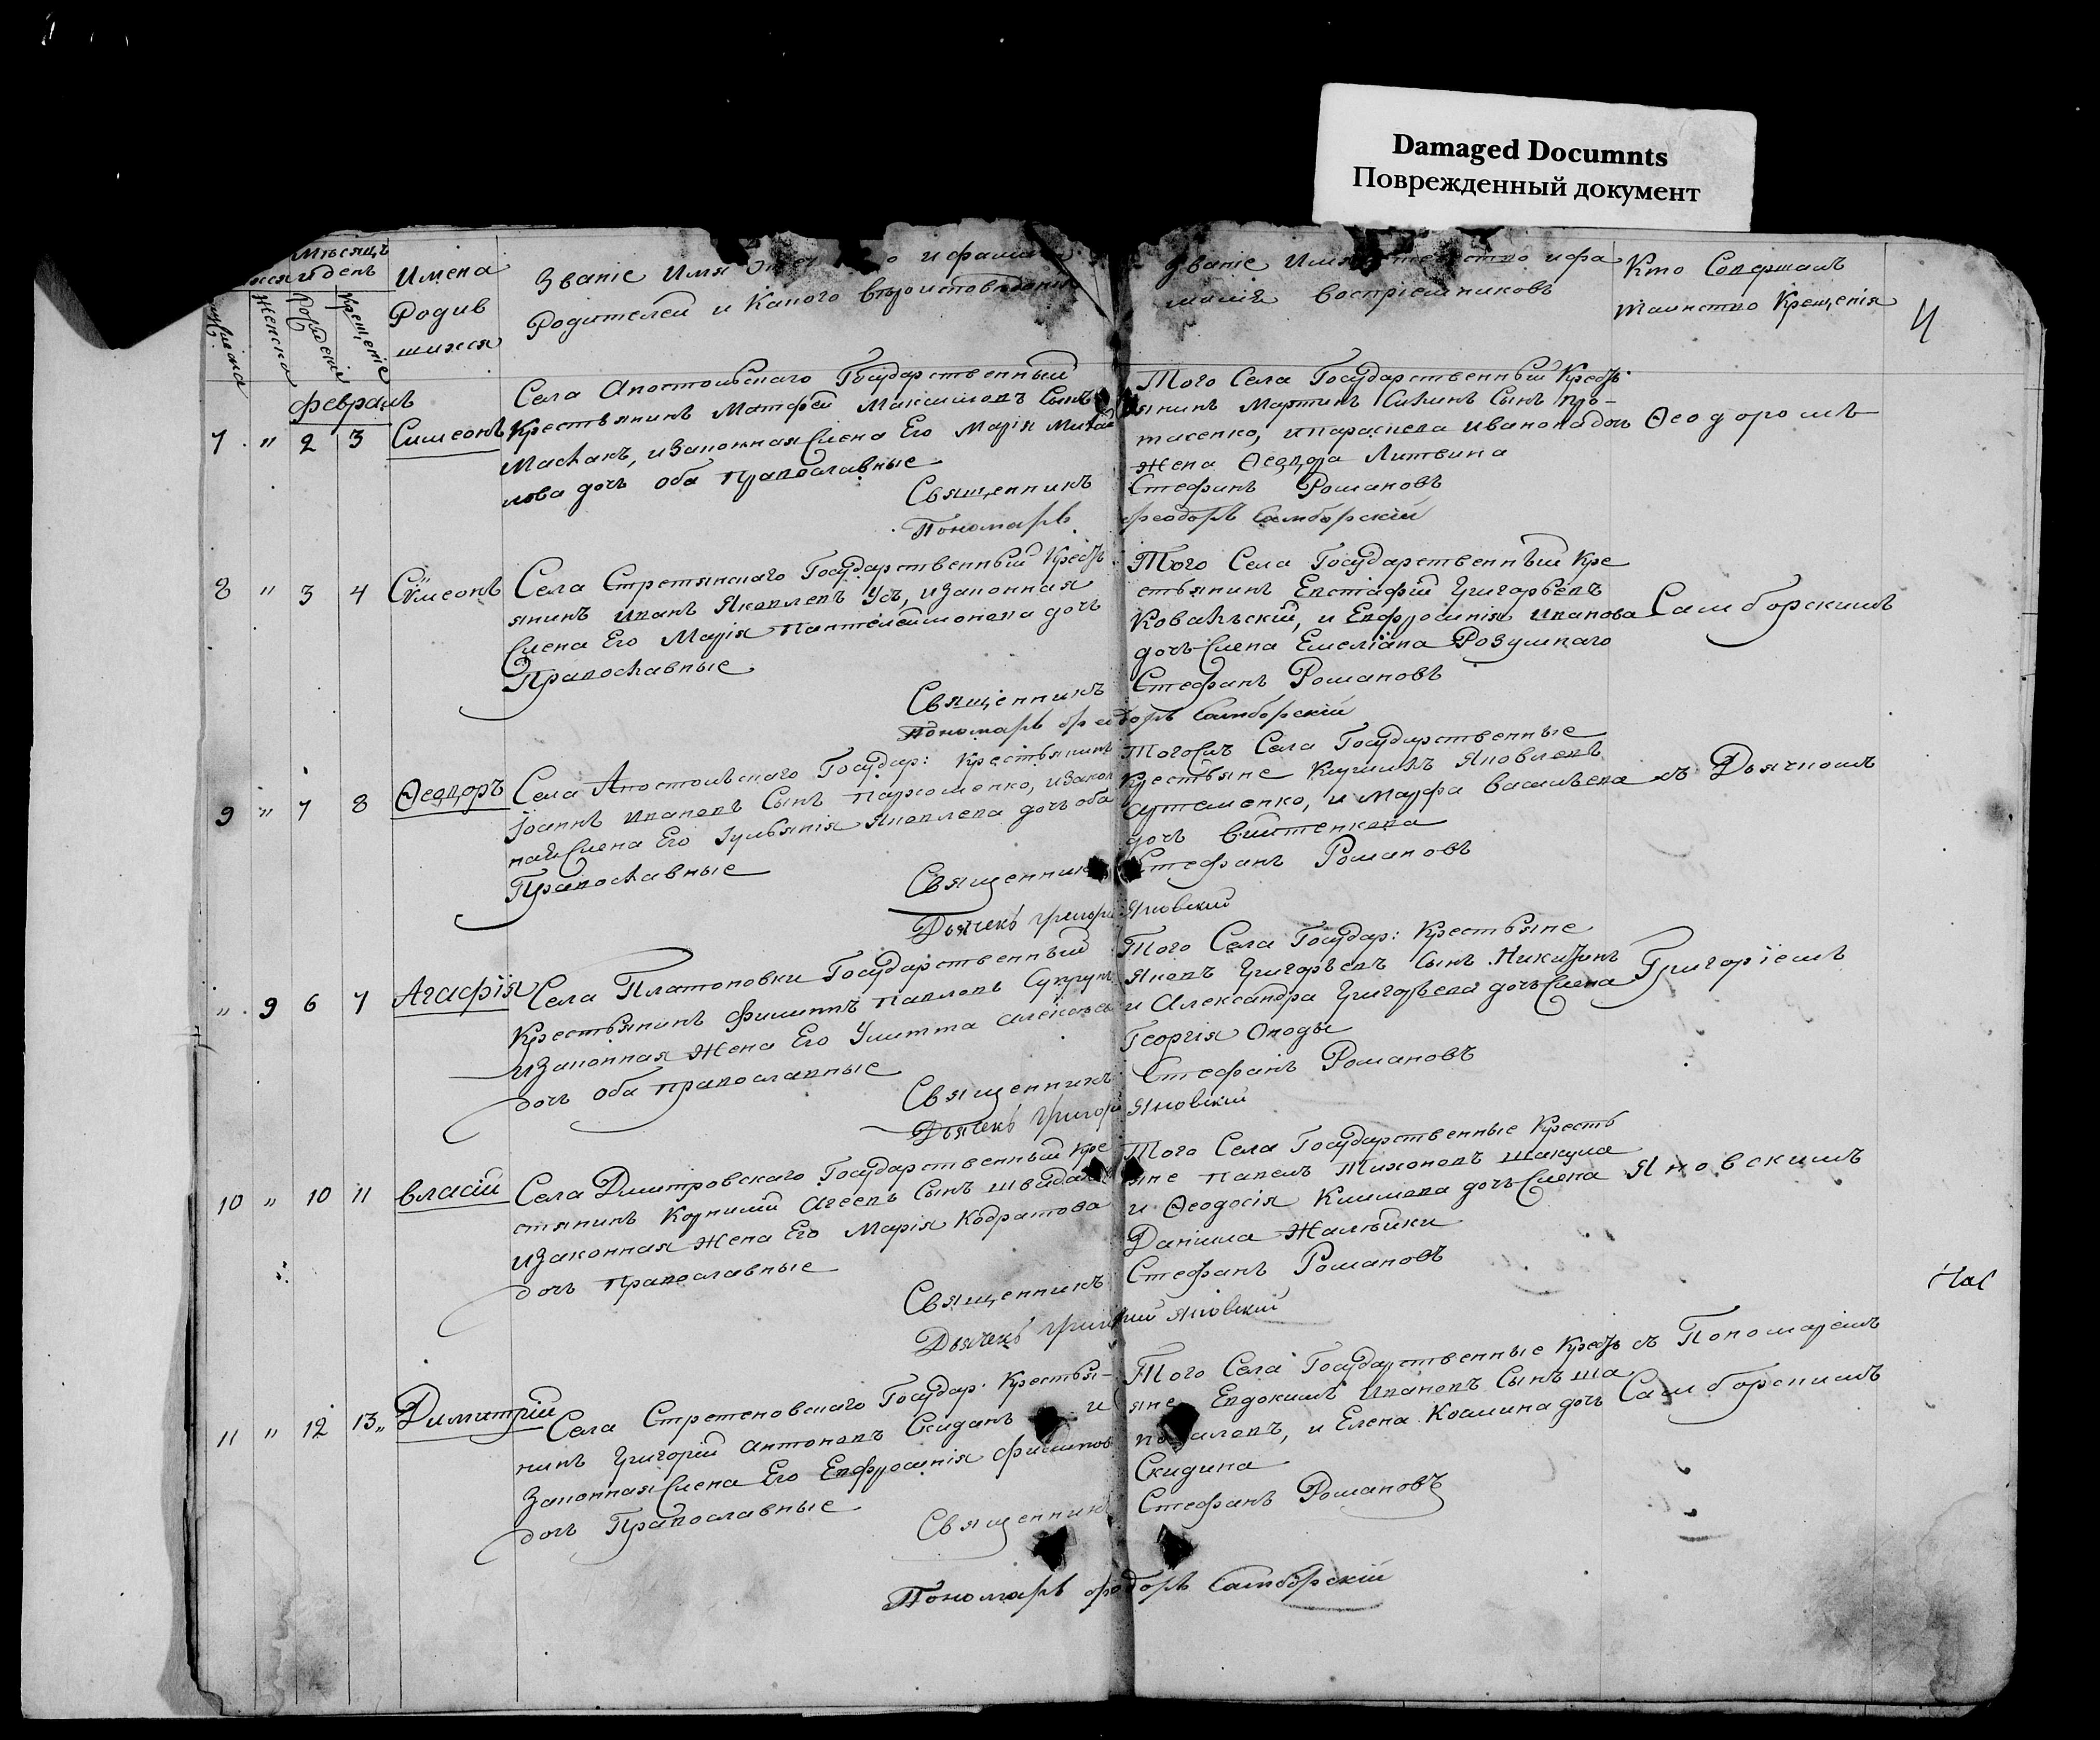 Damaged Documnts
Поврежденный документ
Мѣсяцъ
и день
Имена
Родив
шихся
Женска
Рожденія
Крещеніе
Званіе Имя
Родителей и Какого вѣроисповѣданія
Званіе Имя Отечество и фа
милія воспріемниковъ
Кто Совершалъ
таинство Крещенія
4
февраль
7 " 2 3 Симеонъ
Села Апостольскаго Государственный
Крестьянинъ Матфей Максимовъ Сынъ
и Законная Жена Его Марія Михай
лова дочь оба Православные
Того Села Государственный Кресть
янинъ Мартинъ Сынъ Про-
тасенко, и Параскева Иванова дочь
жена Ѳеодора Литвина
Ѳеодоромъ
Священникъ Стефанъ Романовъ
Пономарь Феодоръ Самборскій
8 " 3 4 Сѵмеонъ
Села Стретинскаго Государственный Кресть
янинъ Иванъ Яковлевъ Усъ, и Законная
Жена Его Марія Пантелеимонова дочь
Православные
Того Села Государственный Кре
стьянинъ Евстафій Григорьевъ
Ковальскій, и Евфросинія Иванова
дочь Жена Емеліана Розумнаго
Самборскимъ
Священникъ Стефанъ Романовъ
Пономарь Феодоръ Самборскій
9 " 7 8 Ѳеодоръ
Села Апостольскаго Государ: Крестьянинъ
Іоаннъ Ивановъ Сынъ Пархоменко, и Закон
ная Жена Его Іульянія Яковлева дочь оба
Православные
Тогожъ Села Государственные
Крестьяне Яковлевъ
и Марфа Васильева
дочь
съ Дьячкомъ
Священникъ Стефанъ Романовъ
Дьячекъ Григорій Яновскій
" 9 6 7 Агафія
Села Платоновки Государственный
Крестьянинъ Филиппъ Павловъ Супрунъ
и Законная Жена Его Улитта Алексѣева
дочь оба Православные
Того Села Государ: Крестьяне
Яковъ Григорьевъ Сынъ
и Александра Григорьева дочь Жена
Георгія
Григоріемъ
Священникъ Стефанъ Романовъ
Дьячекъ Григорій Яновскій
10 " 10 11 Власій
Села Дмитровскаго Государственный Кре
стянинъ Корнилій Агеевъ Сынъ
и Законная Жена Его Марія Кодратова
дочь Православные
Того Села Государственные Кресть
яне Павелъ Тихоновъ Шакула
и Ѳеодосія Климова дочь Жена
Даніила
Яновскимъ
Священникъ Стефанъ Романовъ
Дьячекъ Григорій Яновскій
11 " 12 13 Димитрій
Села Стретеновскаго Государ: Крестья-
нинъ Григорій Антоновъ Скиданъ и
Законная Жена Его Евфросинія Филипов
дочь Православные
Того Села Государственные Кресть
яне Евдокимъ Ивановъ Сынъ Ша
поваловъ, и Елена Космина дочь
Скидина
съ Пономаремъ
Самборскимъ
Священникъ Стефанъ Романовъ
Пономарь Феодоръ Самборскій